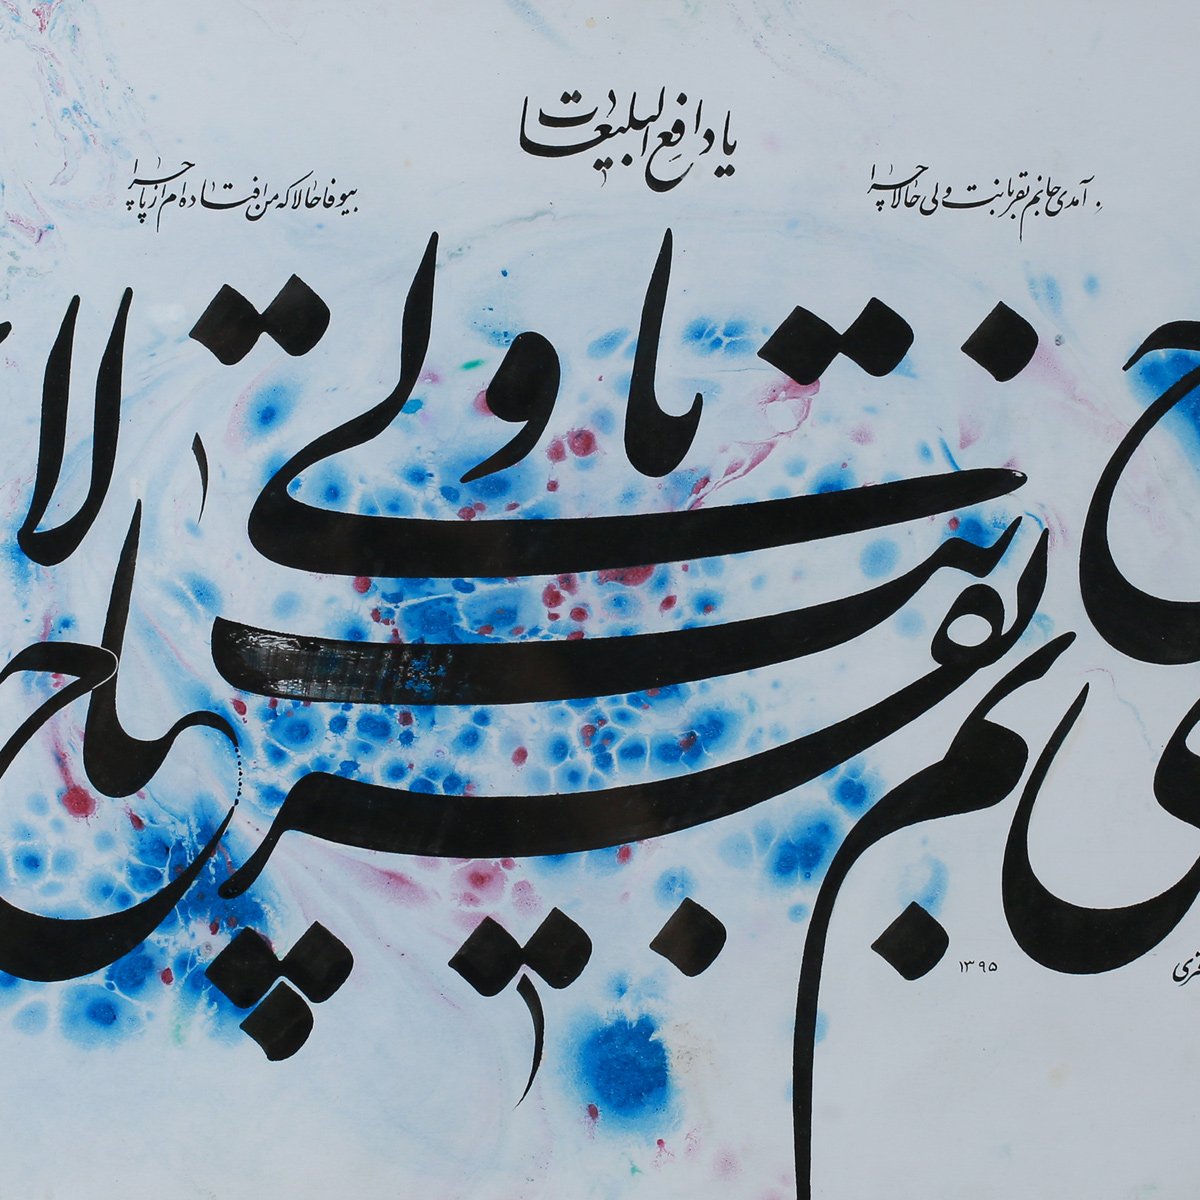 یا دافِع البلیات
آمدی جانم بقربانت ولی حالا چرا
بیوفا حالا که من افتاده ام از پا چرا
جانم بقربانت ولی حالا
۱۳۹۵